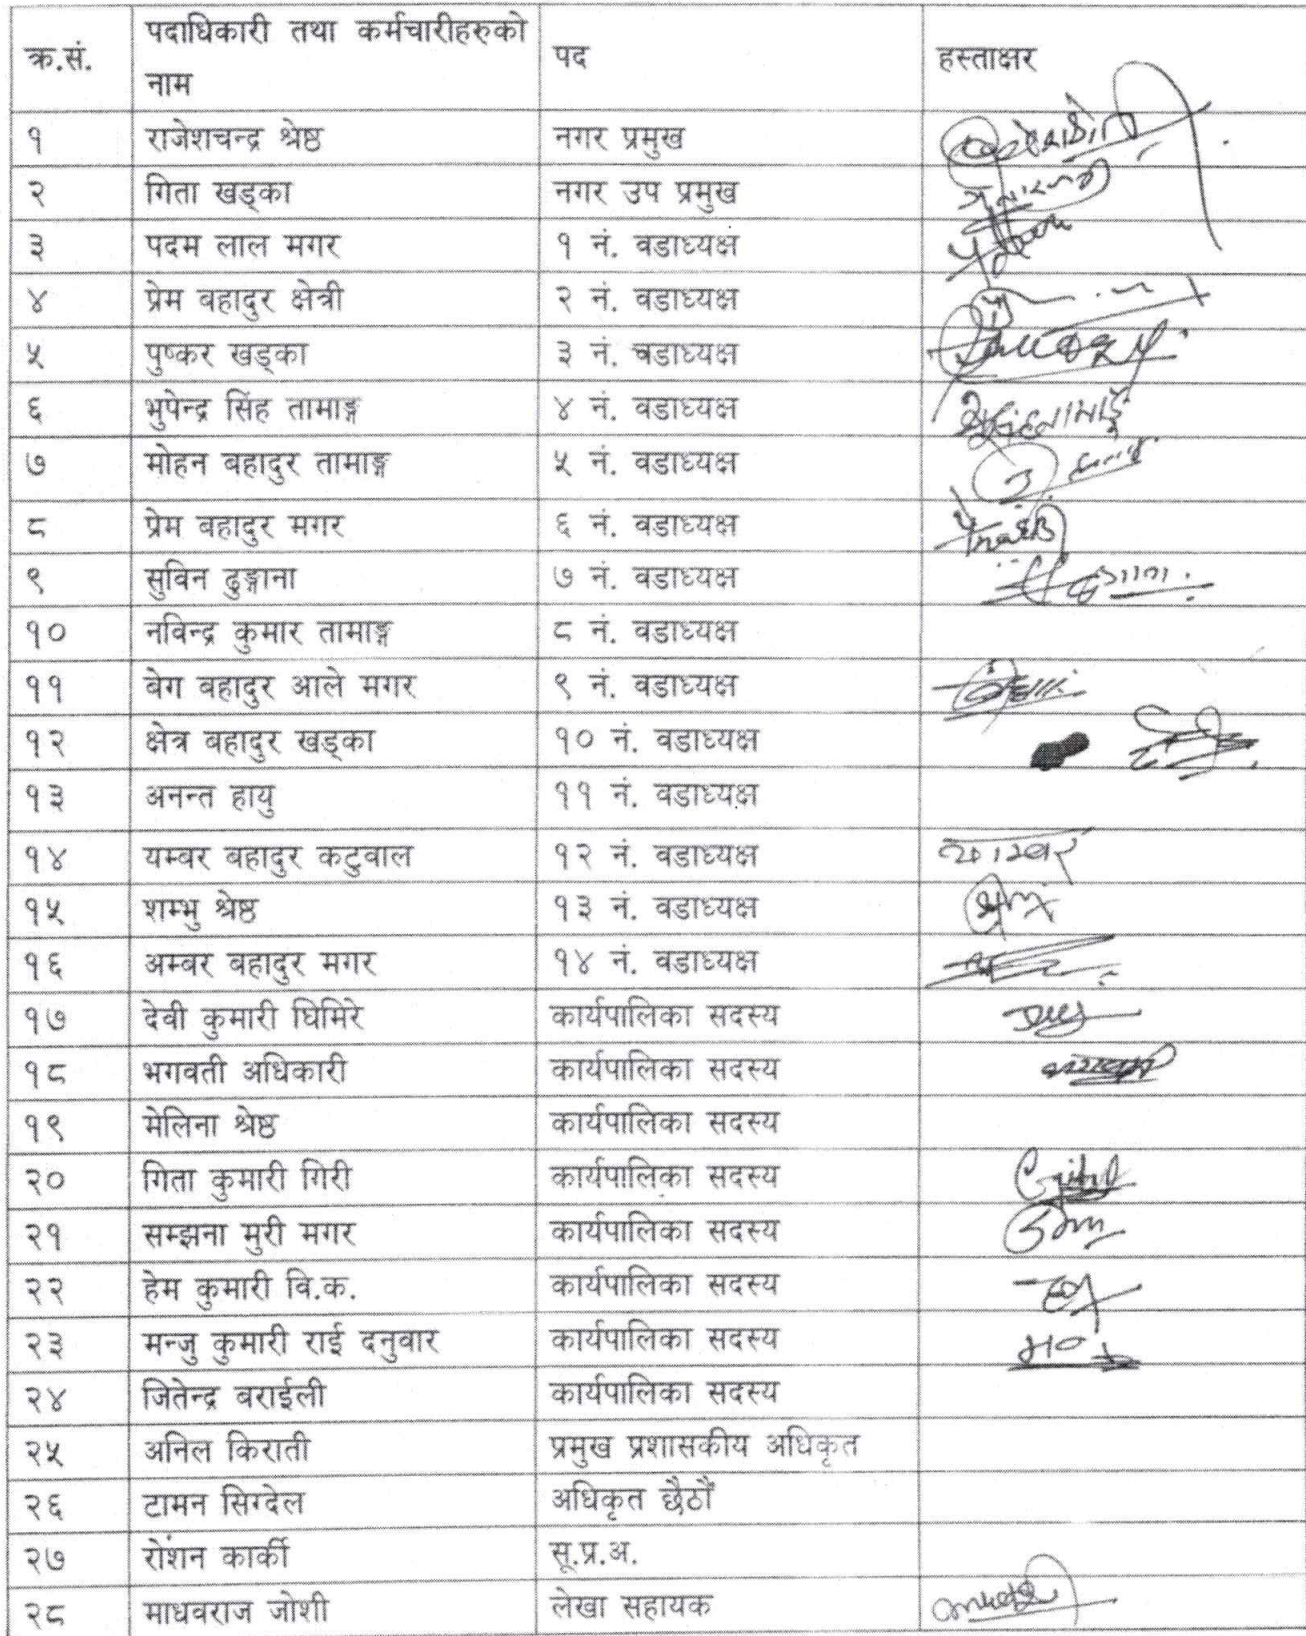 क्र.सं. पदाधिकारी तथा कर्मचारीहरुको नाम पद हस्ताक्षर
१ राजेशचन्द्र श्रेष्ठ नगर प्रमुख
२ गिता खड्का नगर उप प्रमुख
३ पदम लाल मगर १ नं. वडाध्यक्ष
४ प्रेम बहादुर क्षेत्री २ नं. वडाध्यक्ष
५ पुष्कर खड्का ३ नं. वडाध्यक्ष
६ भुपेन्द्र सिंह तामाङ्ग ४ नं. वडाध्यक्ष
७ मोहन बहादुर तामाङ्ग ५ नं. वडाध्यक्ष
८ प्रेम बहादुर मगर ६ नं. वडाध्यक्ष
९ सुविन ढुङ्गाना ७ नं. वडाध्यक्ष
१० नविन्द्र कुमार तामाङ्ग ८ नं. वडाध्यक्ष
११ बेग बहादुर आले मगर ९ नं. वडाध्यक्ष
१२ क्षेत्र बहादुर खड्का १० नं. वडाध्यक्ष
१३ अनन्त हायु ११ नं. वडाध्यक्ष
१४ यम्बर बहादुर कटुवाल १२ नं. वडाध्यक्ष
१५ शम्भु श्रेष्ठ १३ नं. वडाध्यक्ष
१६ अम्बर बहादुर मगर १४ नं. वडाध्यक्ष
१७ देवी कुमारी घिमिरे कार्यपालिका सदस्य
१८ भगवती अधिकारी कार्यपालिका सदस्य
१९ मेलिना श्रेष्ठ कार्यपालिका सदस्य
२० गिता कुमारी गिरी कार्यपालिका सदस्य
२१ सम्झना मुरी मगर कार्यपालिका सदस्य
२२ हेम कुमारी वि.क. कार्यपालिका सदस्य
२३ मन्जु कुमारी राई दनुवार कार्यपालिका सदस्य
२४ जितेन्द्र बराईली कार्यपालिका सदस्य
२५ अनिल किराती प्रमुख प्रशासकीय अधिकृत
२६ टामन सिग्देल अधिकृत छैठौं
२७ रोशन कार्की सू.प्र.अ.
२८ माधवराज जोशी लेखा सहायक